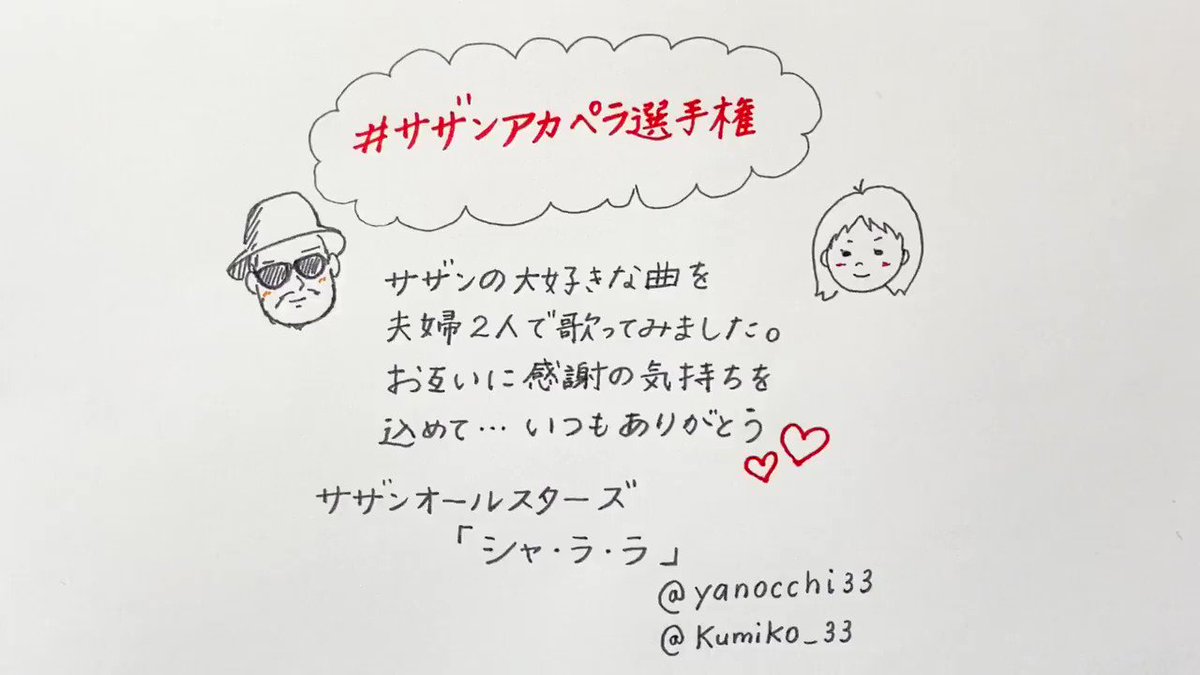 #サザンアカペラ選手権
サザンの大好きな曲を
夫婦2人で歌ってみました。
お互いに感謝の気持ちを
込めて… いつもありがとう
サザンオールスターズ
「シャ・ラ・ラ」
@yanocchi33
@Kumiko_33